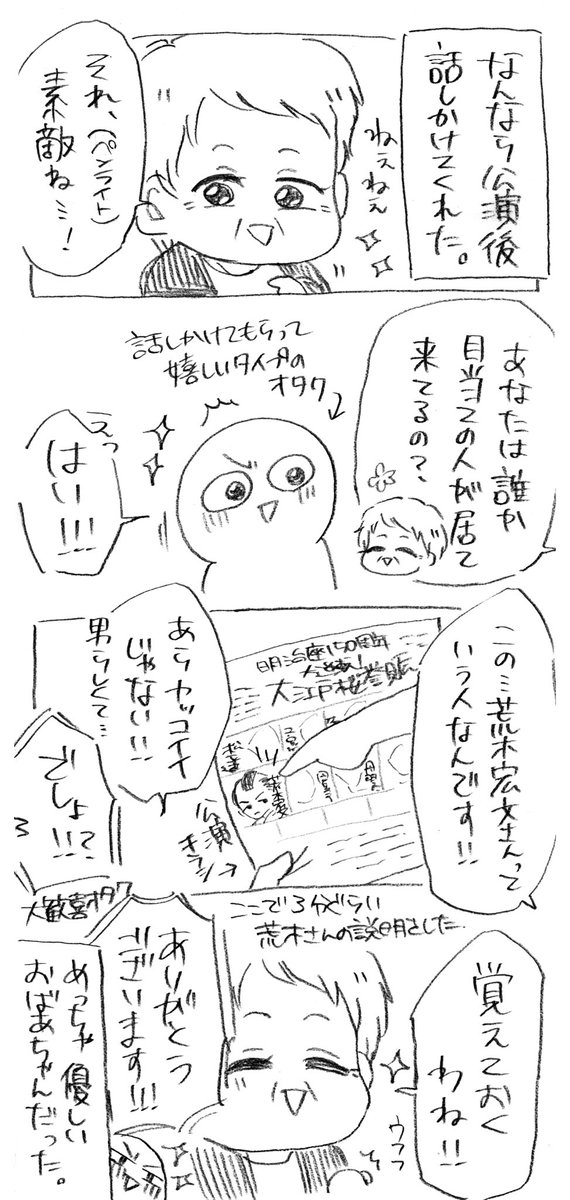 なんなら公演後
話しかけてくれた。
ねぇねぇ
それ、(ペンライト)
素敵ね…!
あなたは誰か
目当ての人が居て
来てるの?
話しかけてもらって
嬉しいタイプの
オタク
えっ
はい!!!
この…荒木宏文さんって
いう人なんです!!
明治座150周年
大江戸桜誉賑
松違
公演
チラシ
あらカッコイイ
じゃない!!
男らしくて…
でしょ?
!!?
大歓喜オタク
ここで3分ぐらい
荒木さんの説明をした
覚えておく
わね!!
ウフフ
ありがとう
ございます!!!
めっちゃ優しい
おばあちゃんだった。